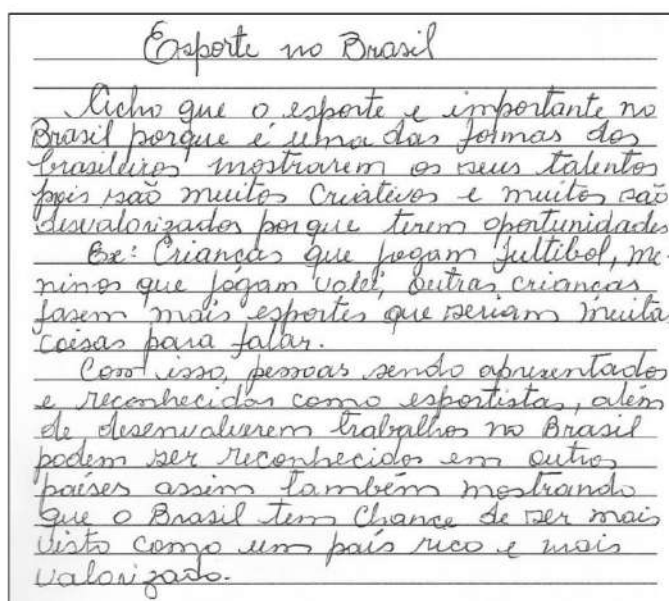 Esporte no Brasil
Acho que o esporte e importante no
Brasil porque é uma das formas dos
brasileiros mostrarem os seus talentos
pois são muitos criativos e muitos são
desvalorizados porque terem oportunidades
Ex: Crianças que jogam futtibol, me-
ninos que jógam volei, outras crianças
fasem mais esportes que seriam muitas
coisas para falar.
Com isso, pessoas sendo apresentados
e reconhecidos como esportistas, além
de desenvalverem trabalhos no Brasil
podem ser reconhecidos em outros
países assim também mostrando
que o Brasil tem chance de ser mais
visto como um país rico e mais
valorizado.